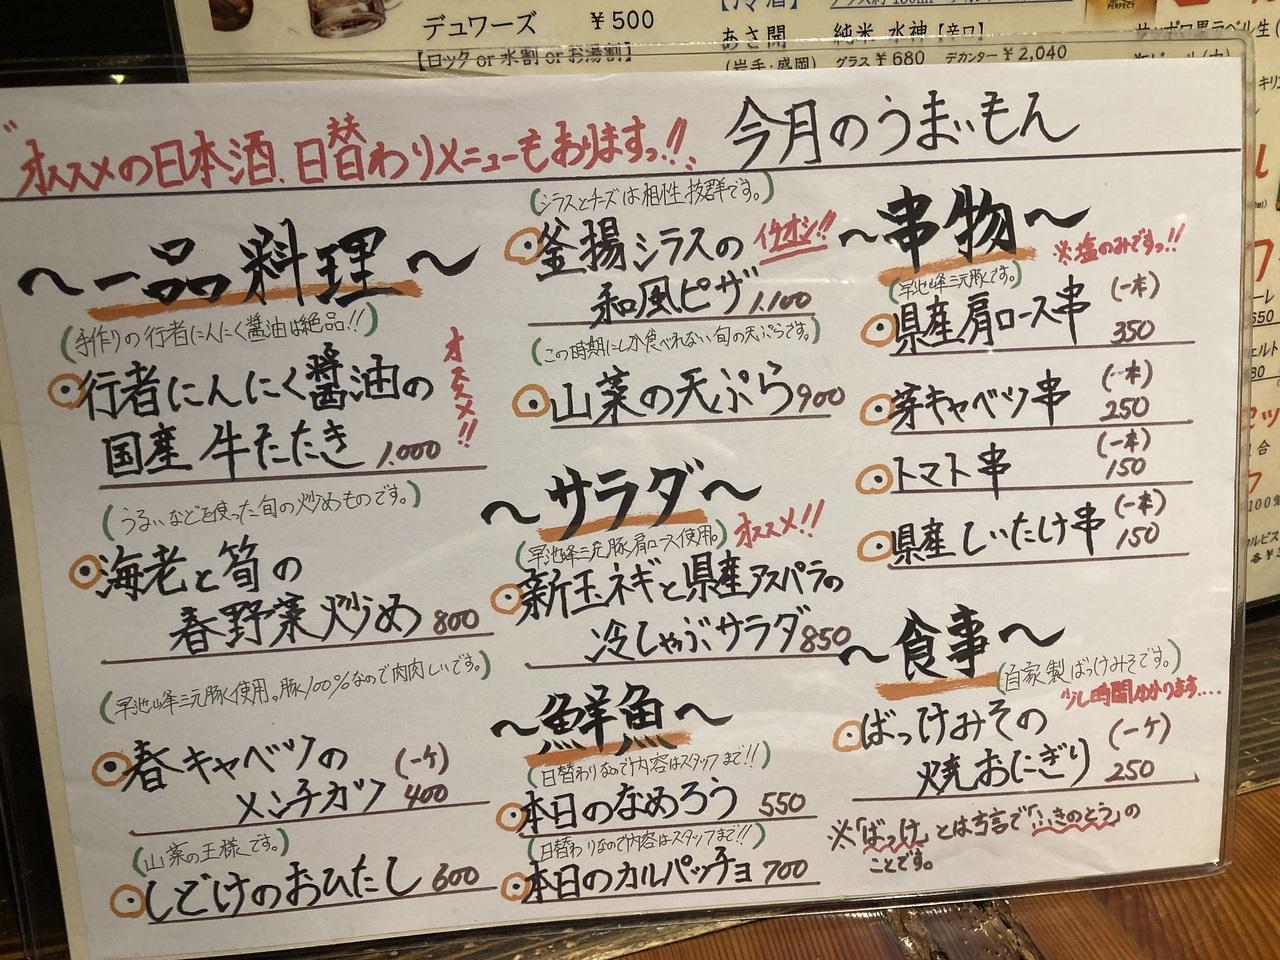 デュワーズ ￥500
【ロック or 水割 or お湯割】
あさ開 純米 水神【辛口】
(岩手・盛岡) グラス￥680 デカンター￥2,040
オススメの日本酒、日替わりメニューもおりますっ!!
今月のうまいもん
～一品料理～
(手作りの行者にんにく醤油は絶品!!)
オススメ!!
行者にんにく醤油の
国産 牛たたき 1,000
(うるいなどを使った旬の炒めものです。)
海老と筍の
春野菜炒め 800
(早池峰三元豚使用。豚100%なので肉肉しいです。)
春キャベツの (一ケ)
メンチカツ 400
(山菜の王様です。)
しどけのおひたし 600
(シラスとチーズは相性抜群です。)
釜揚シラスの イチオシ!!
和風ピザ 1,100
(この時期にしか食べれない旬の天ぷらです。)
山菜の天ぷら 900
～サラダ～
(早池峰三元豚肩ロース使用。) オススメ!!
新玉ネギと県産アスパラの
冷しゃぶサラダ 850
～鮮魚～
(日替わりなので内容はスタッフまで!!)
本日のなめろう 550
(日替わりなので内容はスタッフまで!!)
本日のカルパッチョ 700
～串物～
※塩のみですっ!!
(早池峰三元豚です。)
県産肩ロース串 (一本) 350
芽キャベツ串 (一本) 250
トマト串 (一本) 150
県産しいたけ串 (一本) 150
～食事～
(自家製ばっけみそです。)
少し時間かかります....
ばっけみその (一ケ)
焼おにぎり 250
※「ばっけ」とは方言で「ふきのとう」の
ことです。